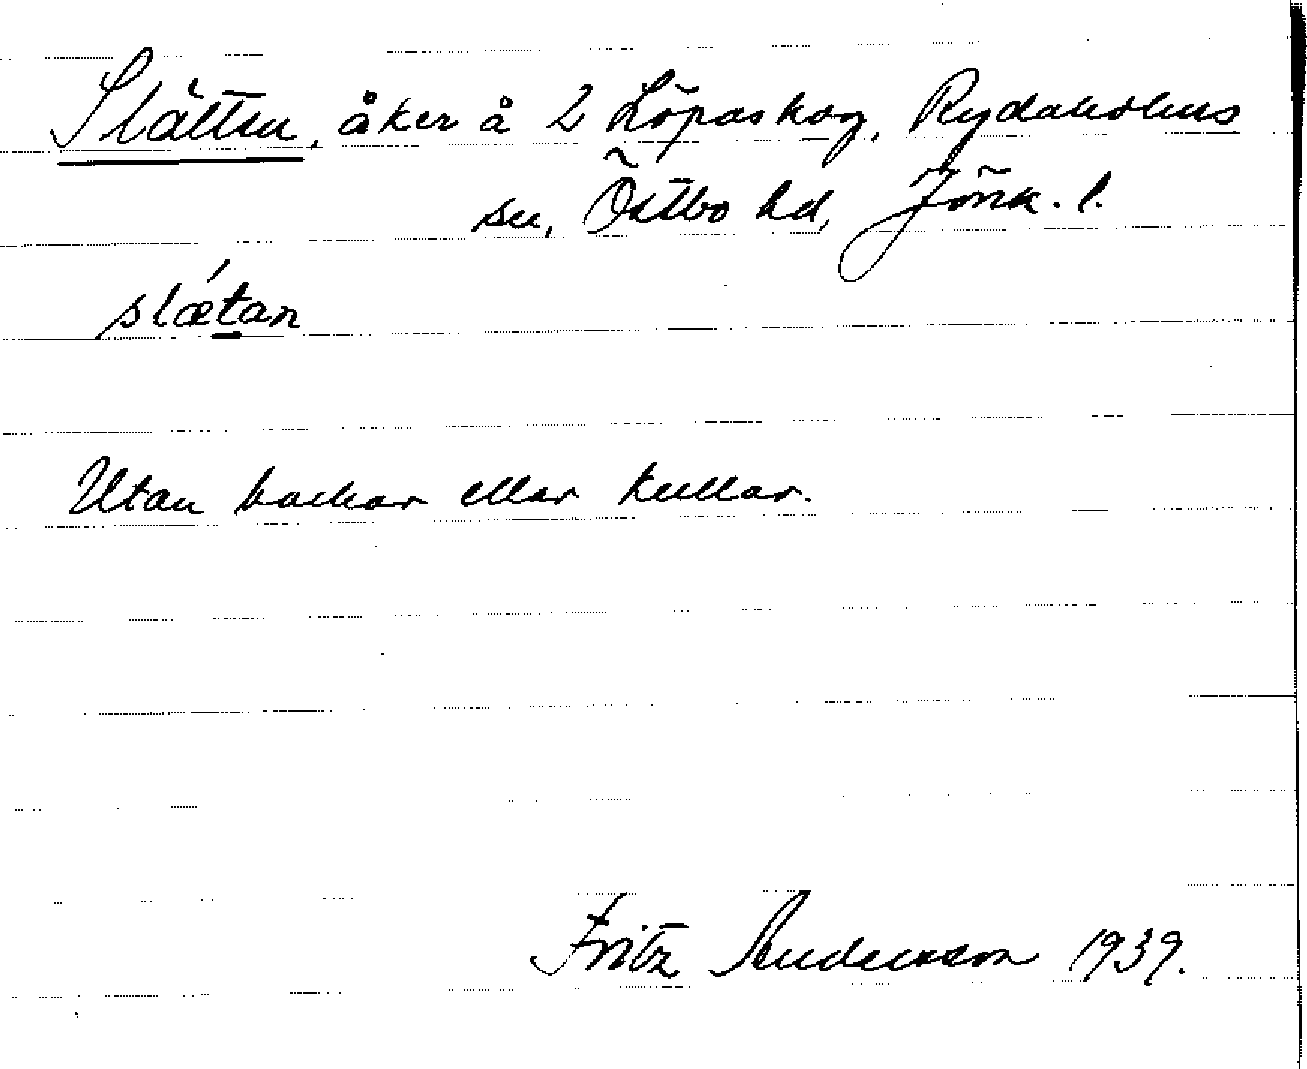 Slätten, åker å 2 Löpaskog, Rydaholms
sn, Östbo hd, Jönk. l.
slǽtan
Utan backar eller kullar.
Fritz Andersson 1939.